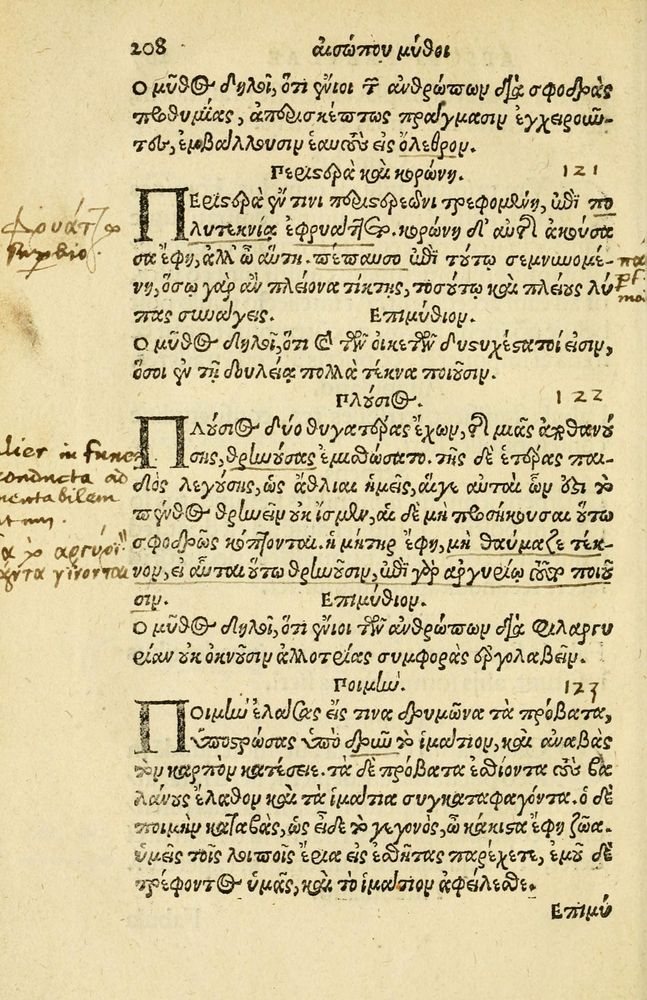 208 αισώπου μῦθοι
Ο μῦθος δηλοῖ, ὅτι ἔνιοι τῶν ἀνθρώπων διὰ σφοδρὰς
προθυμίας, ἀπερισκέπτως πράγμασιν ἐγχειροῦν-
τες, ἐμβάλλουσιν ἑαυτοὺς εἰς ὄλεθρον.
Περιστερὰ καὶ κορώνη. 121
ΠΕριστερὰ ἔν τινι περιστερεῶνι τρεφομένη, ἐπὶ πο
λυτεκνίᾳ ἐφρυάττετο. κορώνη δ' αὐτῆς ἀκούσα
σα ἔφη, ἀλλ' ὦ αὕτη. πέπαυσο ἐπὶ τούτῳ σεμνυομέ-
νη, ὅσῳ γὰρ ἂν πλείονα τίκτῃς, τοσούτῳ καὶ πλείους λύ
πας συνάγεις. Επιμύθιον.
Ο μῦθος δηλοῖ, ὅτι καὶ τῶν οἰκετῶν δυστυχέστατοί εἰσιν,
ὅσοι ἐν τῇ δουλείᾳ πολλὰ τέκνα ποιοῦσιν.
Πλούσιος. 122
ΠΛούσιος δύο θυγατέρας ἔχων, τῆς μιᾶς ἀποθανού
σης, θρηνούσας ἐμισθώσατο. τῆς δὲ ἑτέρας παι-
δὸς λεγούσης, ὡς ἄθλιαι ἡμεῖς, αἵγε αὐταὶ ὧν ἐστι τὸ
πένθος θρηνεῖν οὐκ ἴσμεν, αἱ δὲ μὴ προσήκουσαι οὕτω
σφοδρῶς κόπτονται. ἡ μήτηρ ἔφη, μὴ θαύμαζε τέκ-
νον, εἰ αὗται οὕτω θρηνοῦσιν, ἐπὶ γὰρ ἀργυρίῳ τοῦτο ποιοῦ
σιν. Επιμύθιον.
Ο μῦθος δηλοῖ, ὅτι ἔνιοι τῶν ἀνθρώπων διὰ φιλαργυ
ρίαν οὐκ ὀκνοῦσιν ἀλλοτρίας συμφορὰς ἐργολαβεῖν.
Ποιμήν. 123
ΠΟιμὴν ἐλάσας εἴς τινα δρυμῶνα τὰ πρόβατα,
ὑποστρώσας ὑπὸ δρυῒ τὸ ἱμάτιον, καὶ ἀναβὰς
τὸν καρπὸν κατέσειε. τὰ δὲ πρόβατα ἐσθίοντα τοὺς βα
λάνους ἔλαθον καὶ τὰ ἱμάτια συγκαταφαγόντα. ὁ δὲ
ποιμὴν καταβὰς, ὡς εἶδε τὸ γεγονός, ὦ κάκιστα ἔφη ζῶα.
ὑμεῖς τοῖς λοιποῖς ἔρια εἰς ἐσθῆτας παρέχετε, ἐμοῦ δὲ
τρέφοντος ὑμᾶς, καὶ τὸ ἱμάτιον ἀφείλεσθε.
Επιμύ
lier in funere
conducta ad
γίνονται